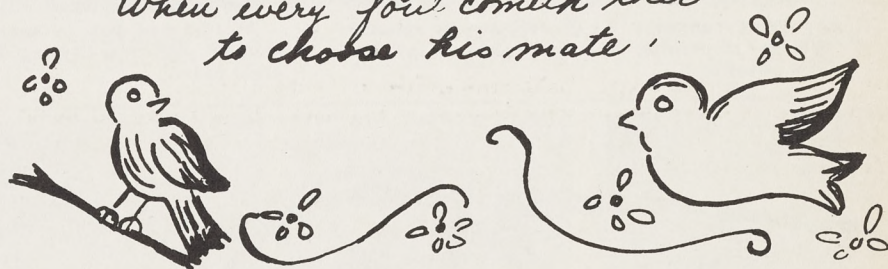 When every fowl cometh ther
to choose his mate '